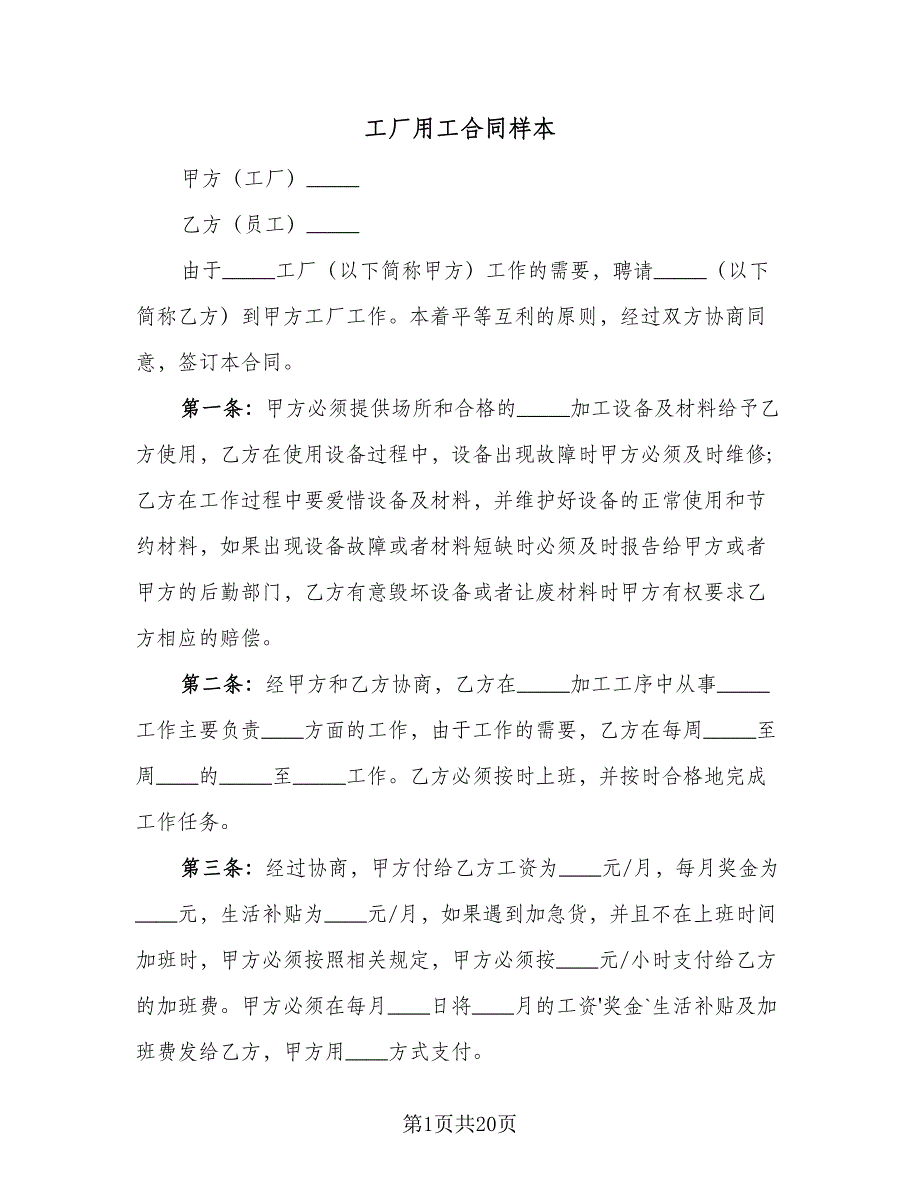 工厂用工合同样本
甲方（工厂）_____
乙方（员工）_____
由于_____工厂（以下简称甲方）工作的需要，聘请_____（以下
简称乙方）到甲方工厂工作。本着平等互利的原则，经过双方协商同
意，签订本合同。
第一条：甲方必须提供场所和合格的_____加工设备及材料给予乙
方使用，乙方在使用设备过程中，设备出现故障时甲方必须及时维修;
乙方在工作过程中要爱惜设备及材料，并维护好设备的正常使用和节
约材料，如果出现设备故障或者材料短缺时必须及时报告给甲方或者
甲方的后勤部门，乙方有意毁坏设备或者让废材料时甲方有权要求乙
方相应的赔偿。
第二条：经甲方和乙方协商，乙方在_____加工工序中从事_____
工作主要负责____方面的工作，由于工作的需要，乙方在每周_____至
周____的_____至_____工作。乙方必须按时上班，并按时合格地完成
工作任务。
第三条：经过协商，甲方付给乙方工资为____元/月，每月奖金为
____元，生活补贴为____元/月，如果遇到加急货，并且不在上班时间
加班时，甲方必须按照相关规定，甲方必须按____元/小时支付给乙方
的加班费。甲方必须在每月____日将____月的工资'奖金`生活补贴及加
班费发给乙方，甲方用____方式支付。
第1页共20页